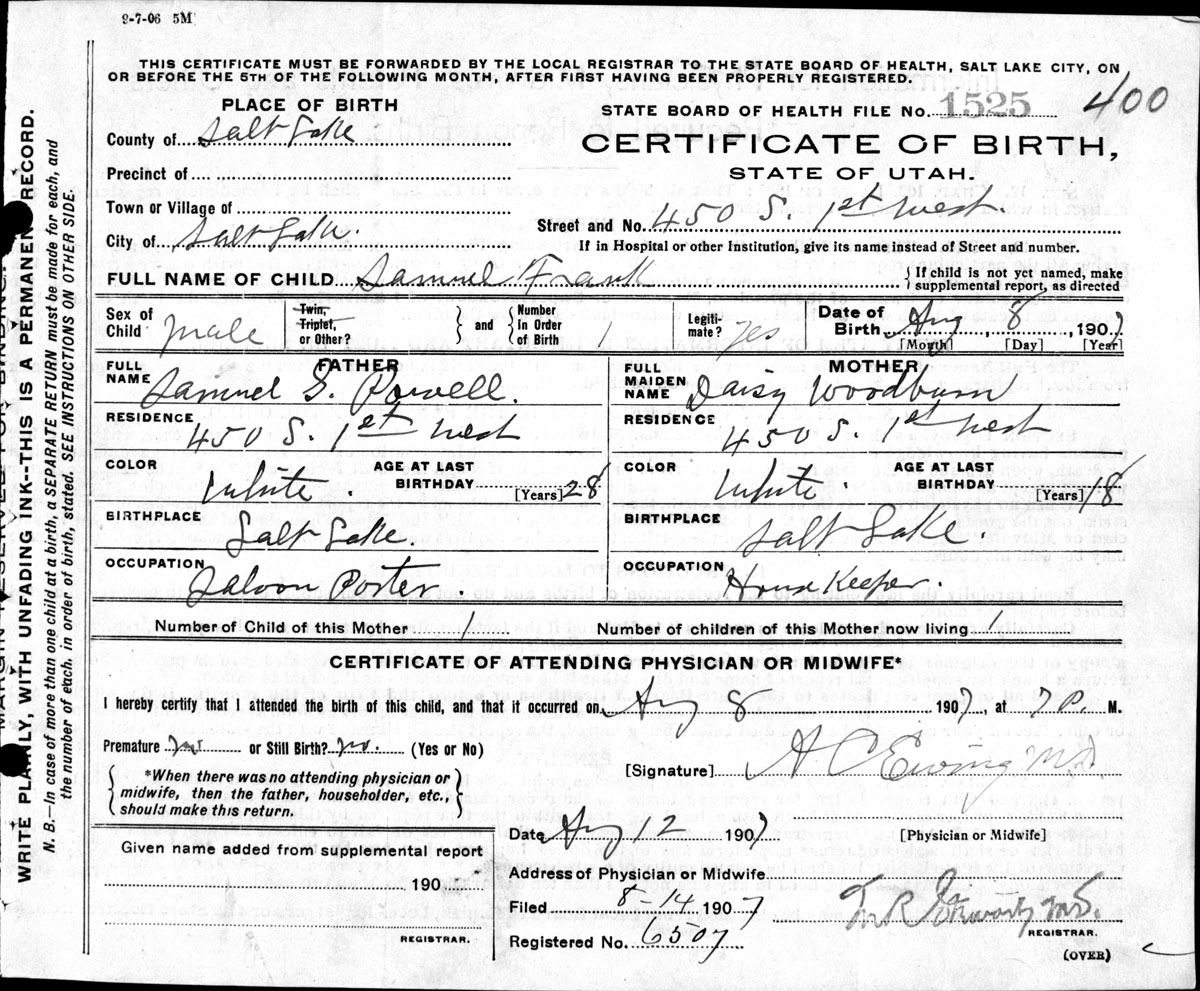 9-7-06 5M
THIS CERTIFICATE MUST BE FORWARDED BY THE LOCAL REGISTRAR TO THE STATE BOARD OF HEALTH, SALT LAKE CITY, ON
OR BEFORE THE 5TH OF THE FOLLOWING MONTH, AFTER FIRST HAVING BEEN PROPERLY REGISTERED.
PLACE OF BIRTH
STATE BOARD OF HEALTH FILE No. 1525 400
County of Salt Lake
CERTIFICATE OF BIRTH,
Precinct of
STATE OF UTAH.
Town or Village of
Street and No. 450 S. 1st West.
City of Salt Lake.
If in Hospital or other Institution, give its name instead of Street and number.
FULL NAME OF CHILD Samuel Frank
If child is not yet named, make
supplemental report, as directed
Sex of Child male
Twin, Triplet, or Other?
and Number In Order of Birth 1
Legiti-mate? yes
Date of Birth Aug 8, 1907
[Month] [Day] [Year]
FATHER
FULL NAME Samuel G. Powell.
MOTHER
FULL MAIDEN NAME Daisy Woodburn
RESIDENCE 450 S. 1st West
RESIDENCE 450 S. 1st West
COLOR White. AGE AT LAST BIRTHDAY [Years] 28
COLOR White. AGE AT LAST BIRTHDAY [Years] 18
BIRTHPLACE Salt Lake.
BIRTHPLACE Salt Lake.
OCCUPATION Saloon Porter
OCCUPATION House Keeper.
Number of Child of this Mother 1 Number of children of this Mother now living 1
CERTIFICATE OF ATTENDING PHYSICIAN OR MIDWIFE*
I hereby certify that I attended the birth of this child, and that it occurred on Aug 8 1907, at 7 P. M.
Premature no or Still Birth? no. (Yes or No)
[Signature] A C Ewing MD.
*When there was no attending physician or
midwife, then the father, householder, etc.,
should make this return.
Date Aug 12 1907
[Physician or Midwife]
Given name added from supplemental report
190
REGISTRAR.
Address of Physician or Midwife
Filed 8-14 1907
Registered No. 6507
REGISTRAR.
(OVER)
WRITE PLAINLY, WITH UNFADING INK--THIS IS A PERMANENT RECORD.
N. B.—In case of more than one child at a birth, a SEPARATE RETURN must be made for each, and
the number of each, in order of birth, stated. SEE INSTRUCTIONS ON OTHER SIDE.